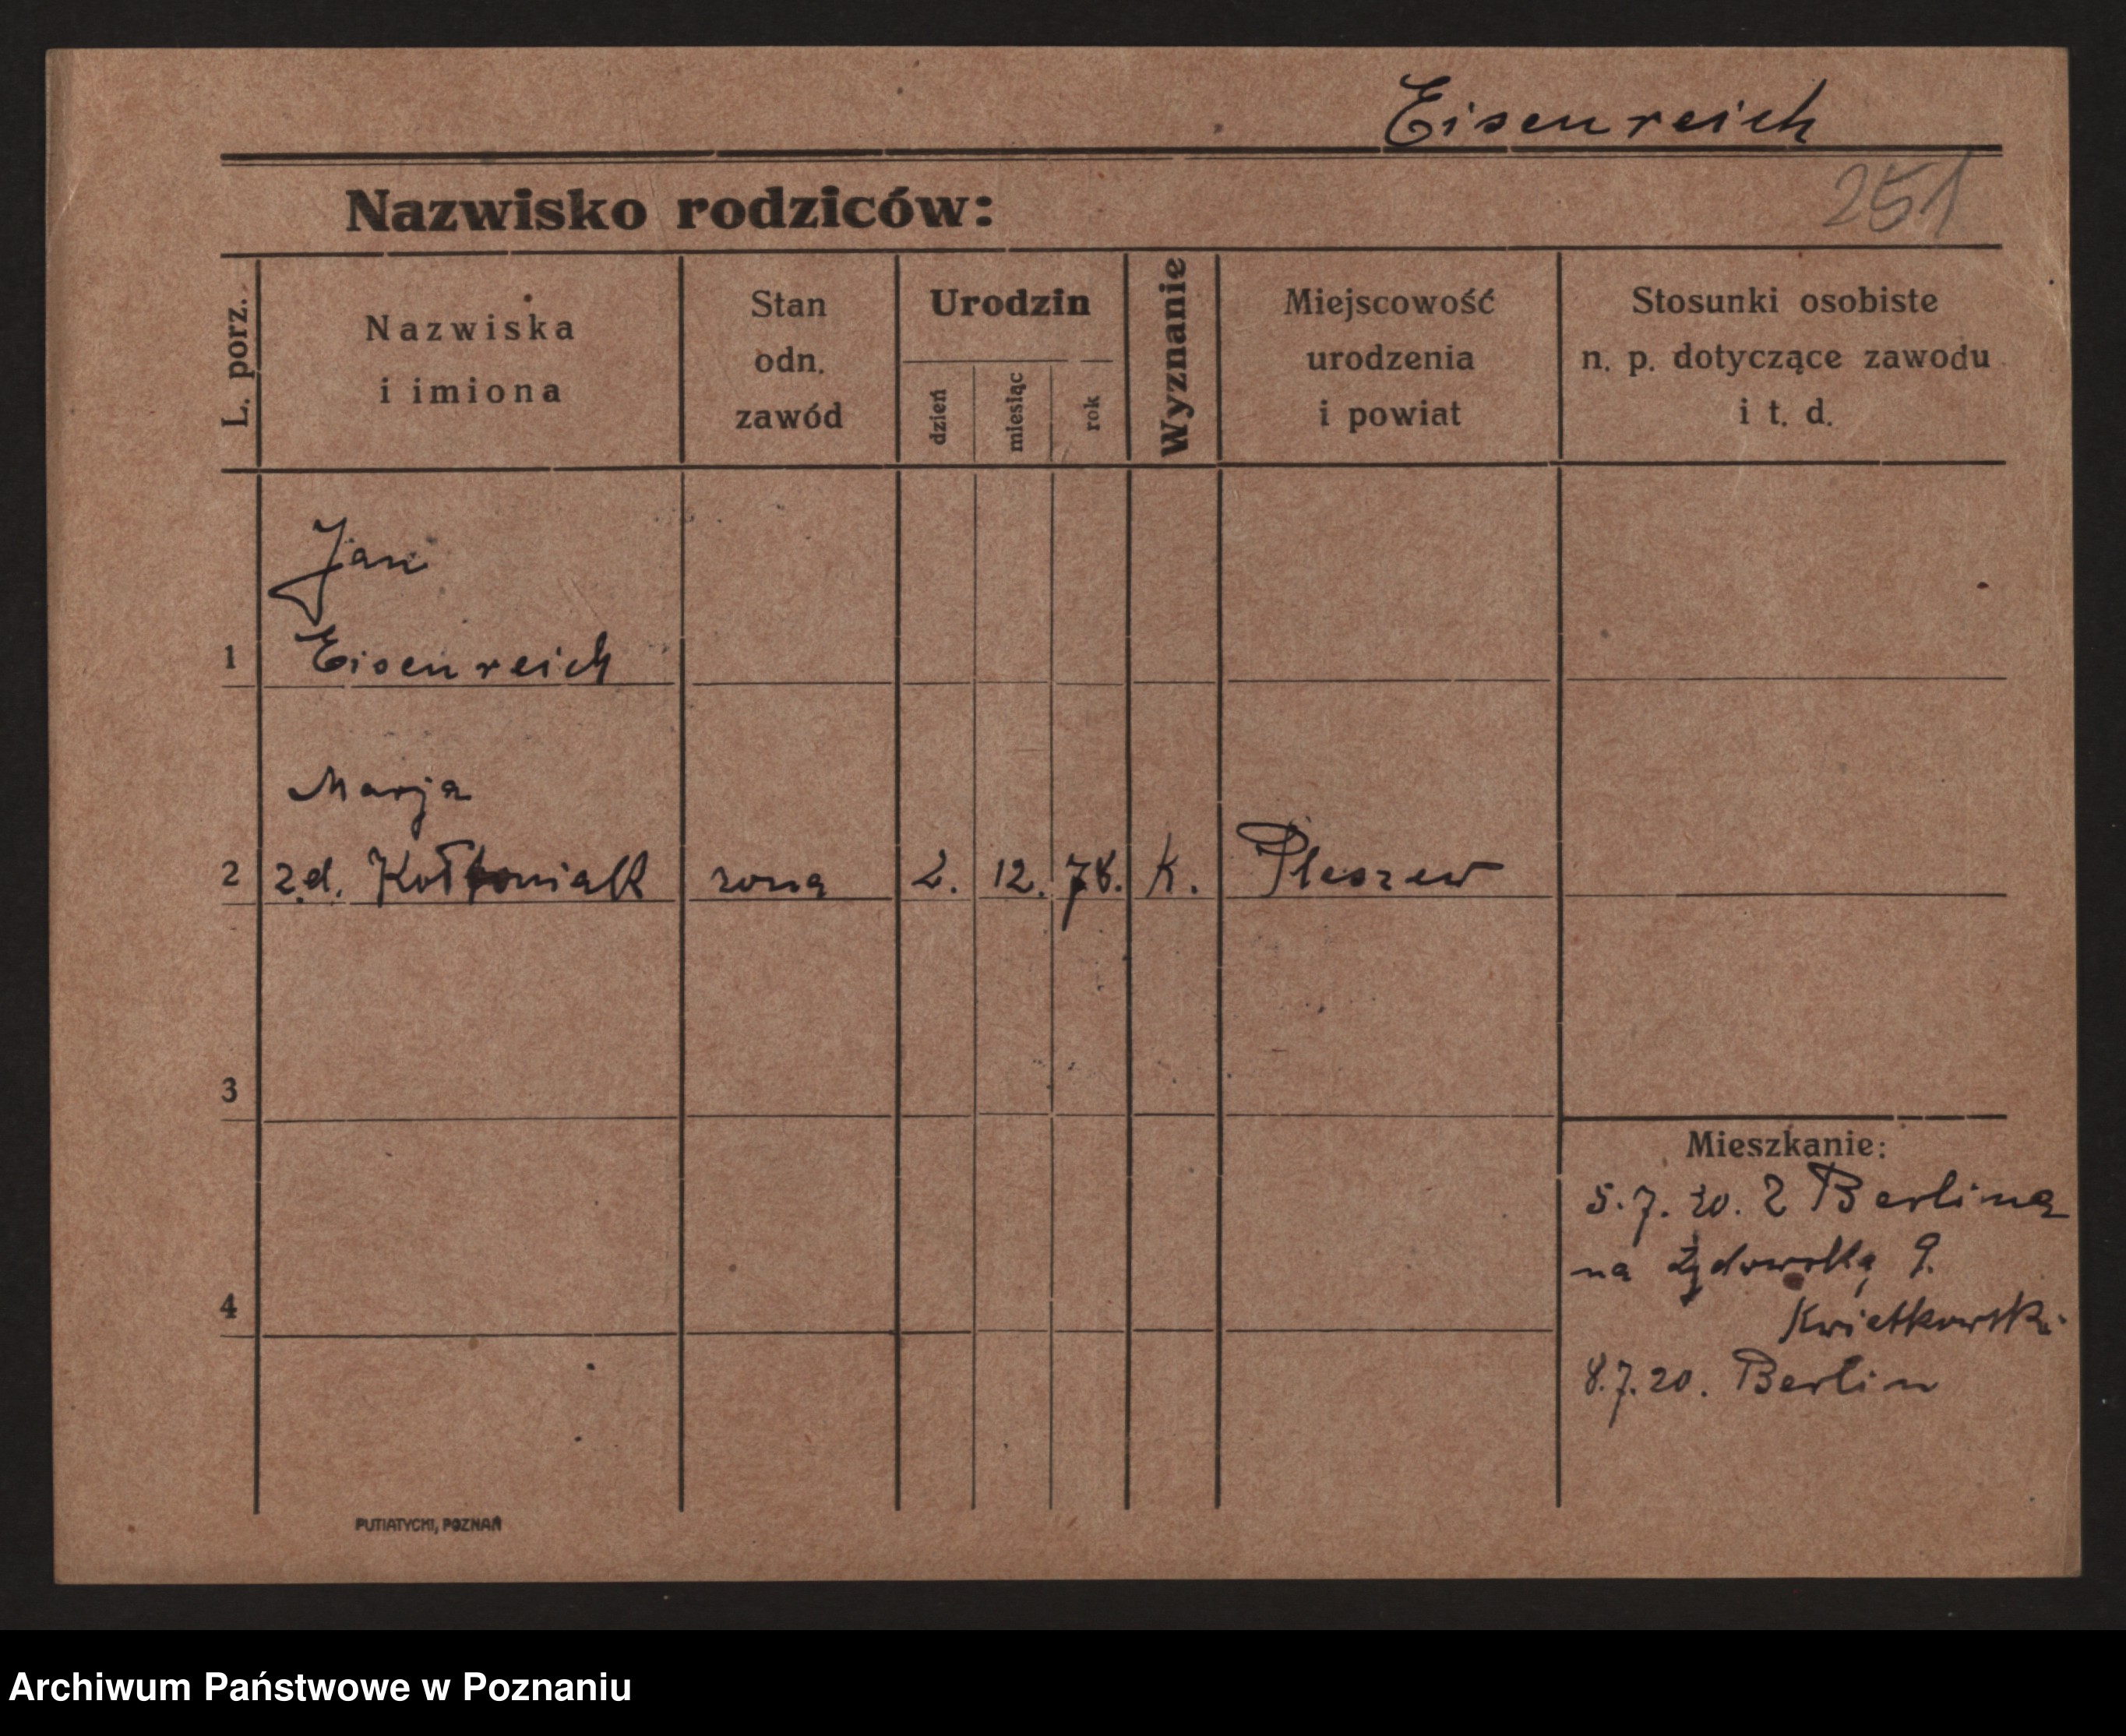 Eisenreich
Nazwisko rodziców:
251
L. porz.
Nazwiska
i imiona
Stan
odn.
zawód
Urodzin
dzień
miesiąc
rok
Wyznanie
Miejscowość
urodzenia
i powiat
Stosunki osobiste
n. p. dotyczące zawodu
i t. d.
Jan
1 Eisenreich
Marja
2 z d. Kołtoniak żona 2. 12. 78. k. Pleszew
3
Mieszkanie:
5.7.20. Z Berlina
na Żydowską 9.
Kwiatkowski
4
8.7.20. Berlin
PUTIATYCKI, POZNAŃ
Archiwum Państwowe w Poznaniu